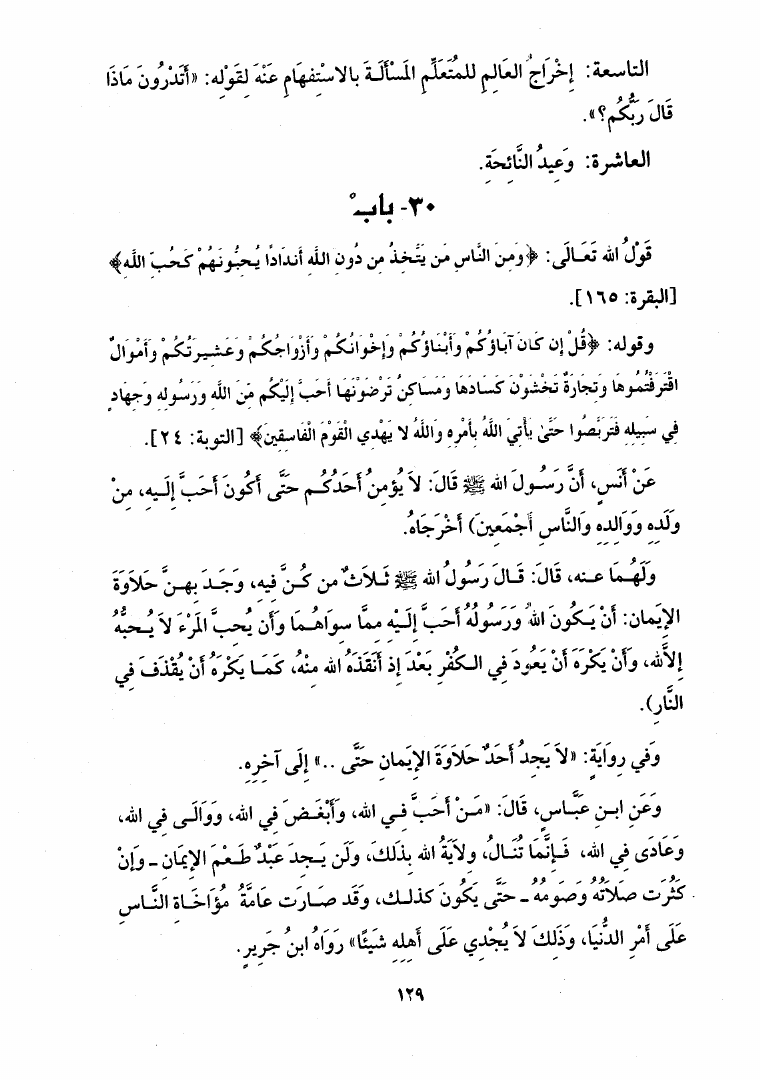 التاسعة: إِخْرَاجُ العَالِمِ للمُتَعَلِّمِ المَسْأَلَةَ بالاسْتِفْهَامِ عَنْهَ لِقَوْلِه: «أَتَدْرُونَ مَاذَا
قَالَ رَبُّكُم؟».
العاشرة: وَعِيدُ النَّائِحَةِ.
٣٠- بابٌ
قَوْلُ الله تَعَالَى: ﴿وَمِنَ النَّاسِ مَن يَتَّخِذُ مِن دُونِ اللَّهِ أَندَادًا يُحِبُّونَهُمْ كَحُبِّ اللَّهِ﴾
[البقرة: ١٦٥].
وقوله: ﴿قُلْ إِن كَانَ آبَاؤُكُمْ وَأَبْنَاؤُكُمْ وَإِخْوَانُكُمْ وَأَزْوَاجُكُمْ وَعَشِيرَتُكُمْ وَأَمْوَالٌ
اقْتَرَفْتُمُوهَا وَتِجَارَةٌ تَخْشَوْنَ كَسَادَهَا وَمَسَاكِنُ تَرْضَوْنَهَا أَحَبَّ إِلَيْكُم مِّنَ اللَّهِ وَرَسُولِهِ وَجِهَادٍ
فِي سَبِيلِهِ فَتَرَبَّصُوا حَتَّىٰ يَأْتِيَ اللَّهُ بِأَمْرِهِ وَاللَّهُ لا يَهْدِي الْقَوْمَ الْفَاسِقِينَ﴾ [التوبة: ٢٤].
عَنْ أَنَسٍ، أَنَّ رَسُولَ الله ﷺ قَالَ: لاَ يُؤمِنُ أَحَدُكُم حَتَّى أَكُونَ أَحَبَّ إِلَيهِ، مِنْ
وَلَدِهِ وَوَالِدِهِ وَالنَّاسِ أَجْمَعِينَ) أَخْرَجَاهُ.
وَلَهُمَا عنه، قَالَ: قَالَ رَسُولُ الله ﷺ ثَلاَثٌ من كُنَّ فِيهِ، وَجَدَ بِهِنَّ حَلاَوَةَ
الإِيمَانِ: أَنْ يَكُونَ اللهُ وَرَسُولُهُ أَحَبَّ إِلَيْهِ مِمَّا سِوَاهُمَا وَأَن يُحِبَّ المَرْءَ لاَ يُحِبُّهُ
إِلاَّلله، وَأَنْ يَكْرَهَ أَنْ يَعُودَ فِي الكُفْرِ بَعْدَ إِذ أَنقَذَهُ الله مِنْهُ، كَمَا يَكْرَهُ أَنْ يُقْذَفَ فِي
النَّارِ).
وَفي رِوَايَةٍ: «لاَ يَجِدُ أَحَدٌ حَلاَوَةَ الإِيمَانِ حَتَّى ..» إِلَى آخِرِهِ.
وَعَنِ ابنِ عَبَّاسٍ، قَالَ: «مَنْ أَحَبَّ فِي الله، وَأَبْغَضَ فِي الله، وَوَالَى فِي الله،
وَعَادَى فِي الله، فَإِنَّمَا تُنَالُ، ولاَيَةُ الله بِذَلكَ، وَلَن يَجِدَ عَبْدٌ طَعْمَ الإِيمَانِ ـ وَإِنْ
كَثُرَت صَلاَتُهُ وَصَومُهُ ـ حَتَّى يَكُونَ كَذلكَ، وَقَد صَارَت عَامَّةُ مُؤَاخَاة النَّاسِ
عَلَى أَمْرِ الدُّنيَا، وَذَلِكَ لاَ يُجْدِي عَلَى أَهلِهِ شَيئًا» رَوَاهُ ابنُ جَرِيرٍ.
١٢٩